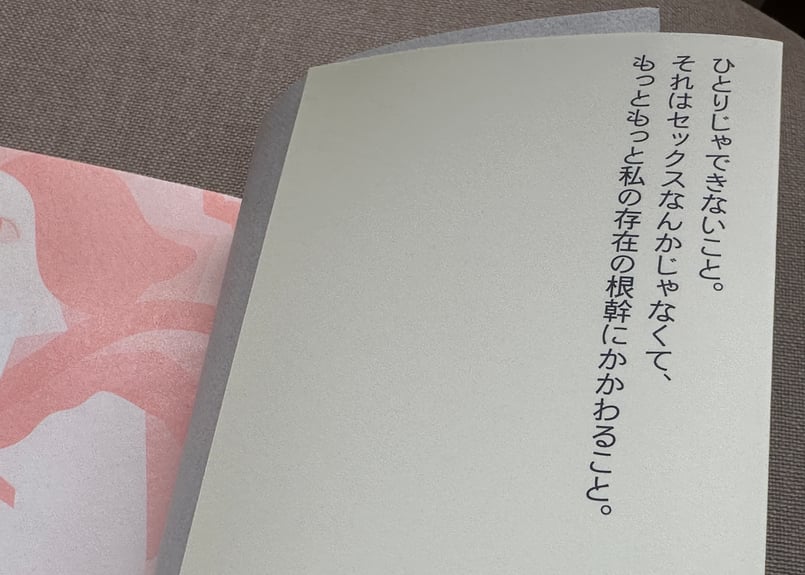 ひとりじゃできないこと。
それはセックスなんかじゃなくて、
もっともっと私の存在の根幹にかかわること。